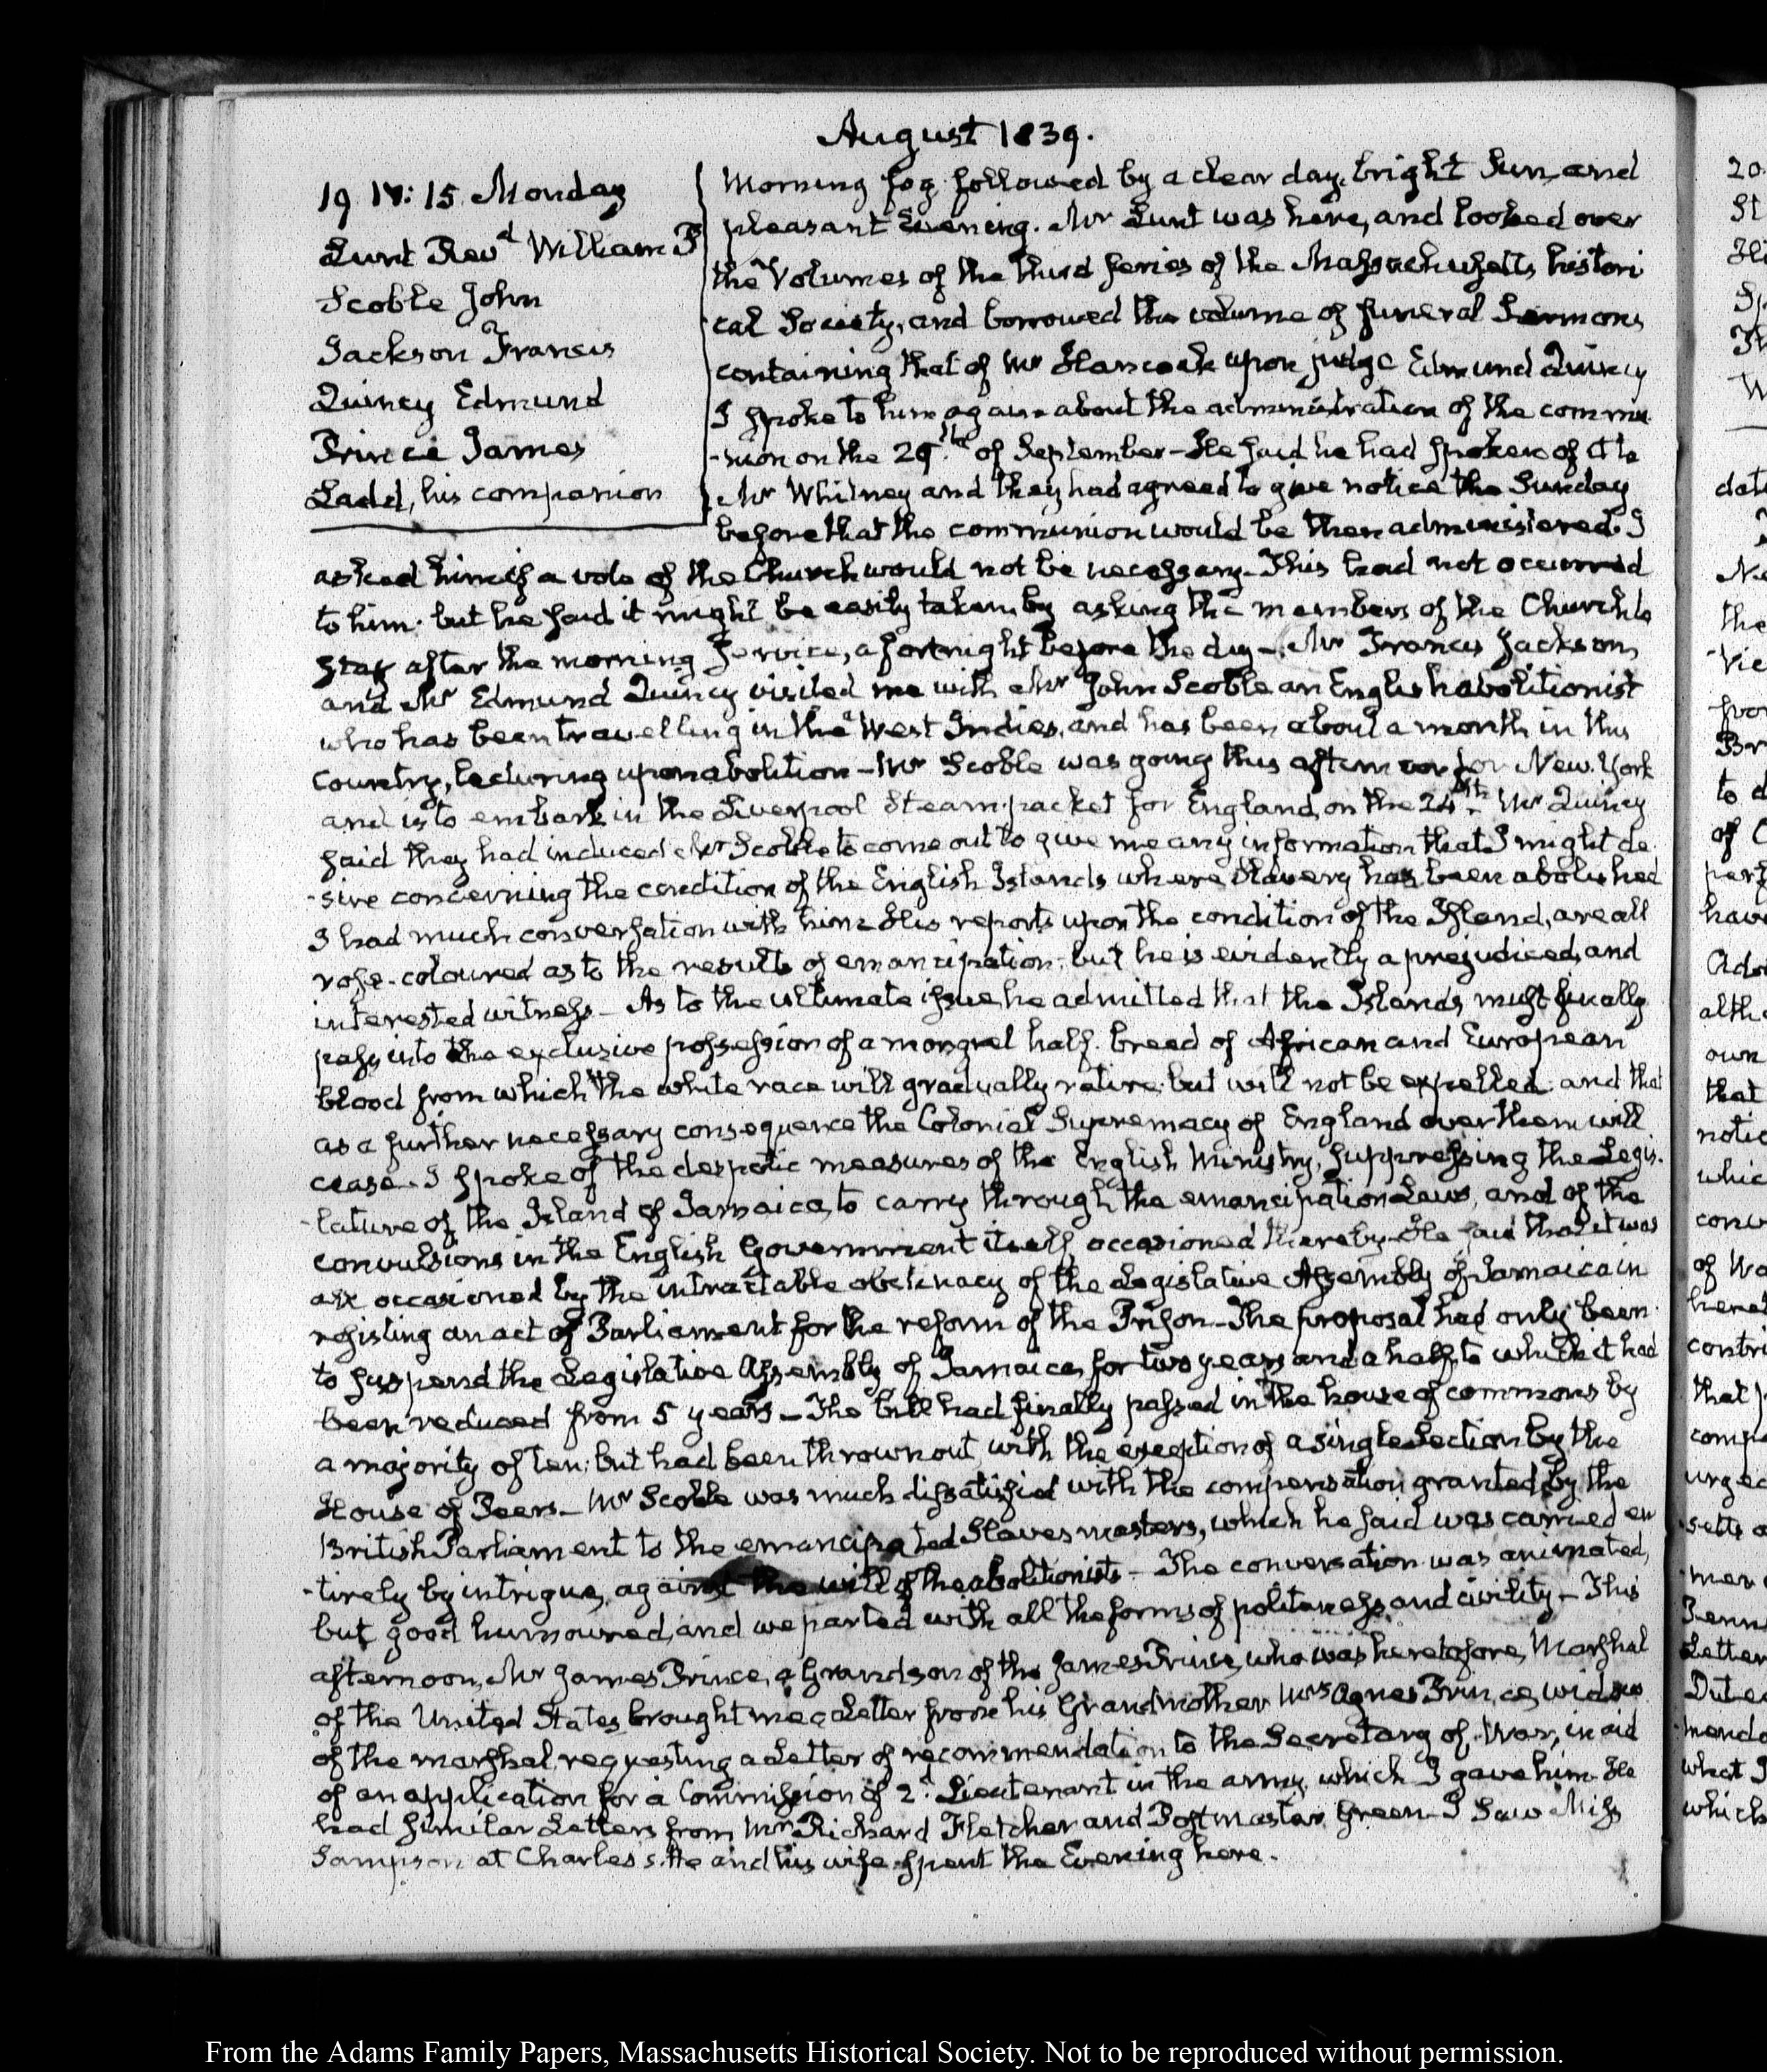 August 1839.
19. IV: 15. Monday
Lunt Revd William P
Scoble John
Jackson Francis
Quincy Edmund
Prince James
Ladd, his companion
Morning fog followed by a clear day, bright Sun, and
pleasant Evening. Mr Lunt was here, and looked over
the Volumes of the third series of the Massachusetts histori
cal Society, and borrowed the volume of funeral Sermons
containing that of Mr Hancock upon judge Edmund Quincy
I spoke to him again about the administration of the commu
-nion on the 29th of September – He said he had spoken of it to
Mr Whitney and they had agreed to give notice the Sunday
before that the communion would be then administered. I
asked him if a vote of the Church would not be necessary – This had not occurred
to him. but he said it might be easily taken, by asking the members of the Church to
stay after the morning service, a fortnight before the day – Mr Francis Jackson,
and Mr Edmund Quincy visited me with Mr John Scoble an English abolitionist
who has been travelling in the West Indies, and has been about a month in this
Country, lecturing upon abolition – Mr Scoble was going this afternoon for New-York
and is to embark in the Liverpool Steam-packet for England, on the 24th. Mr Quincy
said they had induced Mr Scoble to come out to give me any information that I might de
-sire concerning the condition of the English Islands where Slavery has been abolished
I had much conversation with him – His reports upon the condition of the Island, are all
rose-coloured as to the results of emancipation; but he is evidently a prejudiced, and
interested witness – As to the ultimate issue he admitted that the Islands must finally
pass into the exclusive possession of a mongrel half-breed of African and European
blood from which the white race will gradually retire; but will not be expelled: and that
as a further necessary consequence the Colonial Supremacy of England over them will
cease – I spoke of the despotic measures of the English Ministry, suppressing the Legis-
-lature of the Island of Jamaica, to carry through the emancipation Laws, and of the
convulsions in the English Government itself, occasioned thereby – He said that it was
all occasioned by the intractable obstinacy of the Legislative Assembly of Jamaica in
resisting an act of Parliament for the reform of the Prison – The proposal had only been
to suspend the Legislative Assembly of Jamaica, for two years and a half, to which it had
been reduced from 5 years – The bill had finally passed in the house of commons by
a majority of ten; but had been thrown out, with the exception of a single Section by the
House of Peers – Mr Scoble was much dissatisfied with the compensation granted by the
British Parliament to the emancipated Slaves masters, which he said was carried en
-tirely by intrigue, against the will of the abolitionists – The conversation was animated,
but good humoured, and we parted with all the forms of politeness and civility – This
afternoon, Mr James Prince, a Grandson of the James Prince, who was heretofore, Marshal
of the United States, brought me a Letter from his Grandmother Mrs Agnes Prince, widow
of the marshal, requesting a Letter of recommendation to the Secretary of War, in aid
of an application for a Commission of 2d. Lieutenant in the army, which I gave him. He
had similar Letters from Mr Richard Fletcher and Postmaster Green – I saw Miss
Sampson at Charles's. He and his wife spent the Evening here.
From the Adams Family Papers, Massachusetts Historical Society. Not to be reproduced without permission.